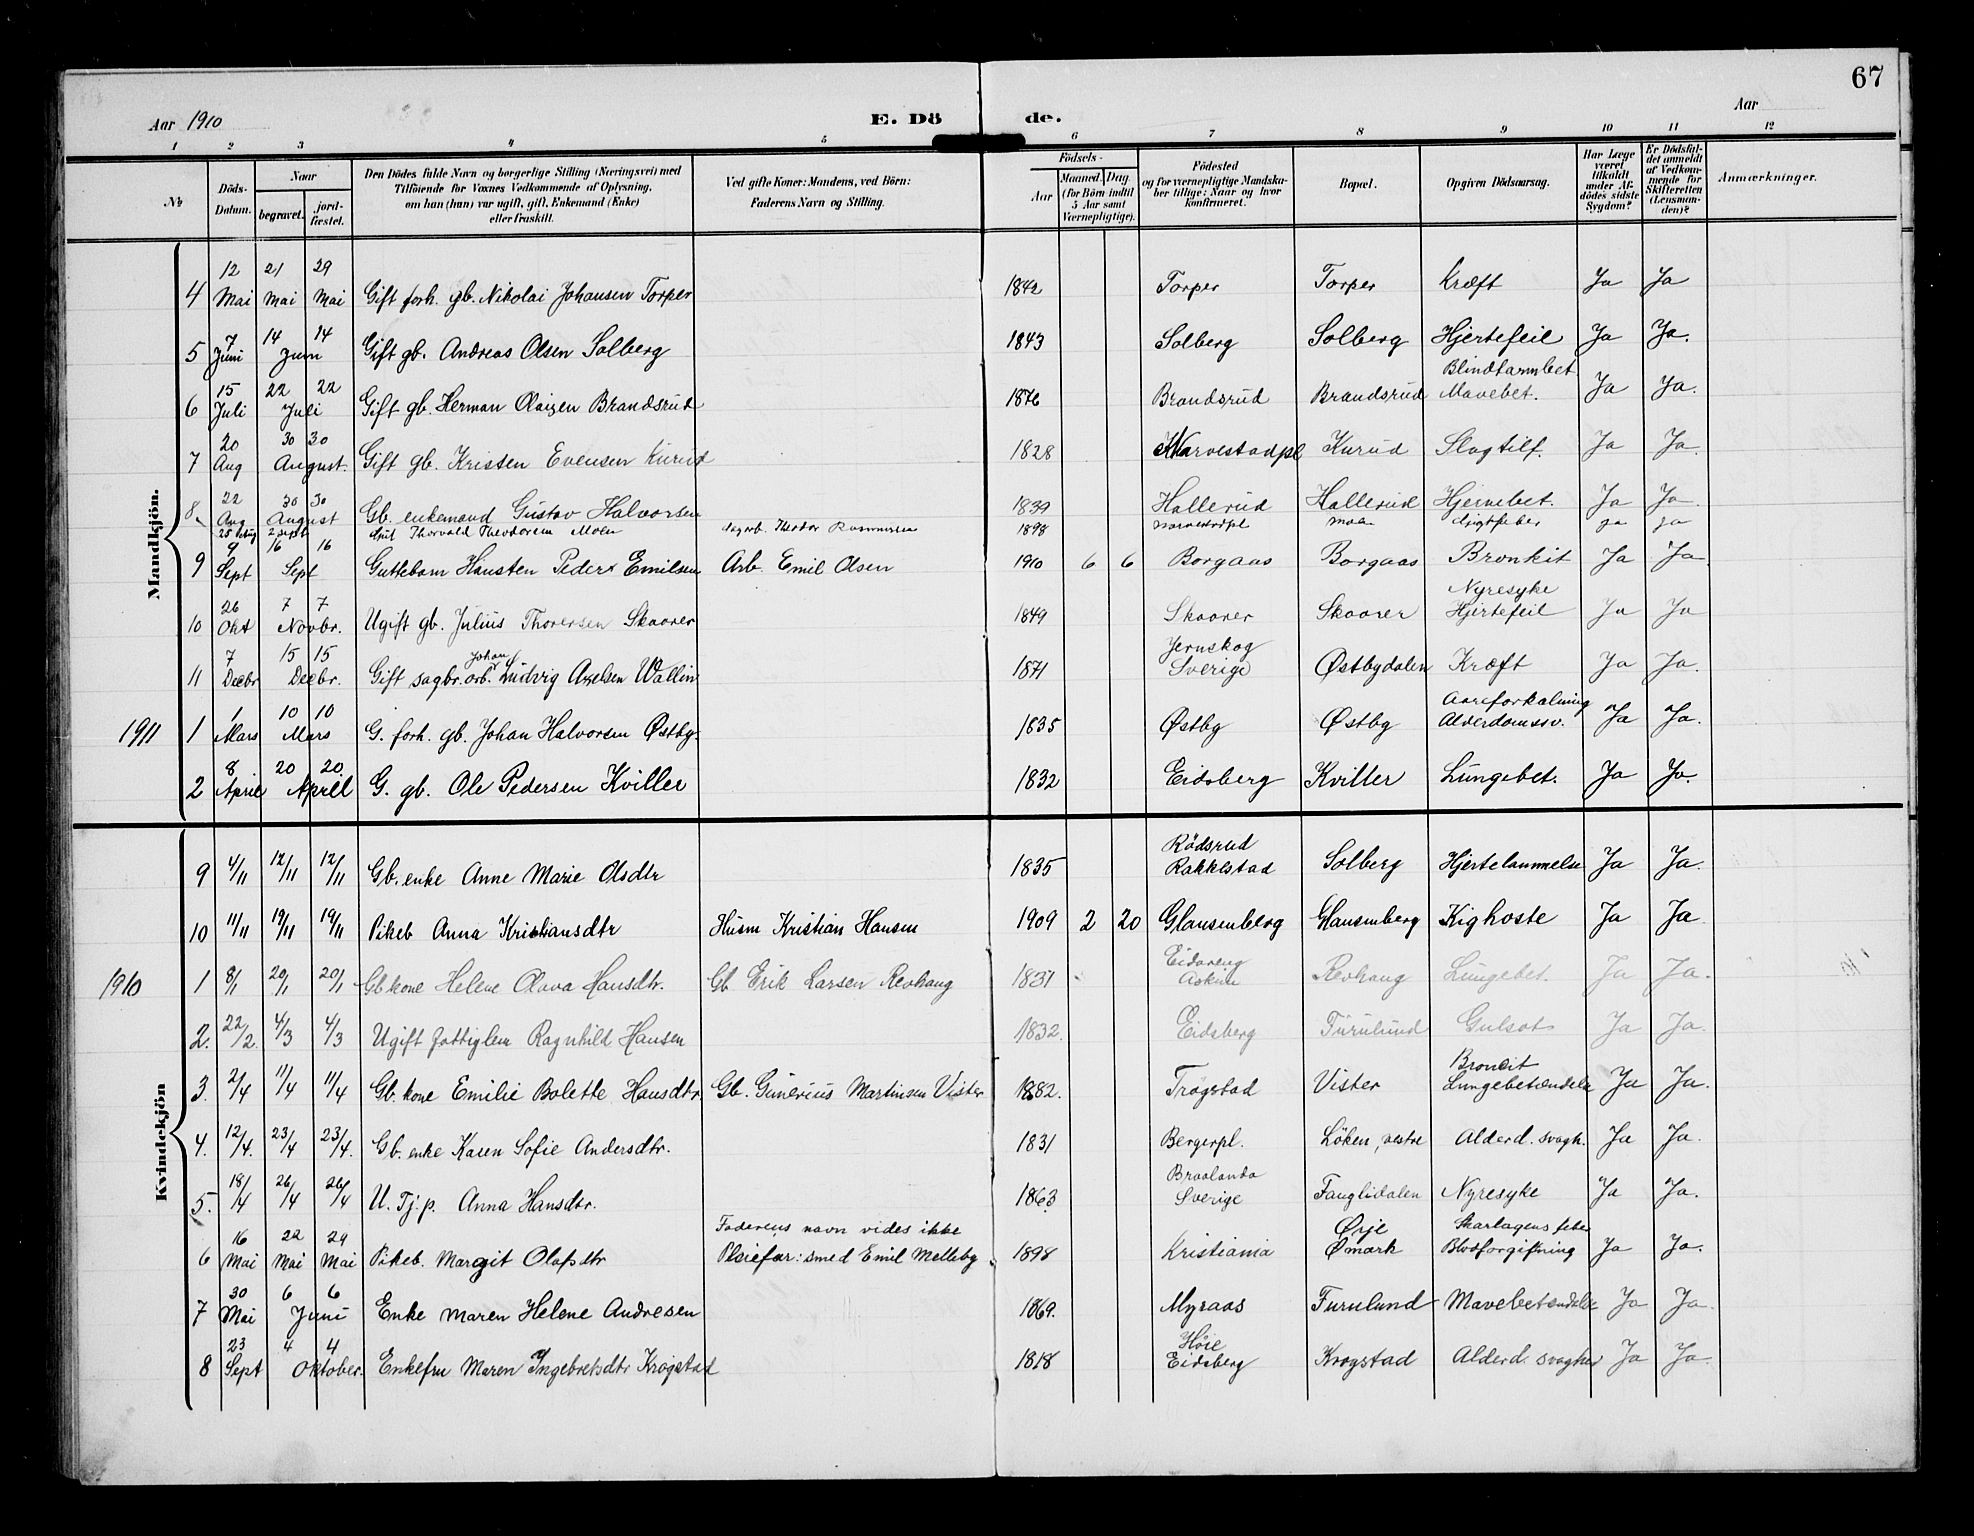 67
Aar 1910 E. Dö de. Aar
1 2 3 4 5 6 7 8 9 10 11 12
No
Döds-Datum.
Naar
begravet.
jord-fæstet.
Den Dödes fulde Navn og borgerlige Stilling (Næringsvei) med
Tilföiende for Voxnes Vedkommende af Oplysning,
om han (hun) var ugift, gift, Enkemand (Enke)
eller fraskilt.
Ved gifte Koner: Mandens, ved Börn:
Faderens Navn og Stilling.
Födsels-
Aar
Maaned. Dag.
(for Börn indtil
5 Aar samt
Værnepligtige).
Födested
og for værnepligtige Mandska-
ber tillige: Naar og hvor
konfirmeret.
Bopæl.
Opgiven Dödsaarsag.
Har Læge
været
tilkaldt
under Af-
dödes sidste
Sygdom?
Er Dödsfal-
det anmeldt
af Vedkom-
mende for
Skifteretten
(Lensman-
den)?
Anmærkninger.
Mandkjön.
12 21 29
4 Mai Mai Mai Gift forh. gb. Nikolai Johansen Torper 1842 Torper Torper Kræft Ja Ja
7 14 14
5 Juni Juni Gift gb. Andreas Olsen Solberg 1843 Solberg Solberg Hjertefeil Ja Ja.
15 22 22 Blindtarmbet
6 Juli Juli Gift gb. Herman Olaisen Brandsrud 1876 Brandsrud Brandsrud Mavebet. Ja Ja.
20 30 30
7 Aug August. Gift gb. Kristen Evensen Kurud 1828 Narvestadpl Kurud Slagtilf. Ja Ja.
22 30 30
8 Aug August Gb. enkemand Gustav Halvorsen 1839 Hallerud Hallerud Hjernebet. Ja Ja.
25 Aug 2 Sept Thorvald Theodorsen Moen Theodor Rasmussen 1898 Moen Gigtfeber ja ja
9 16 16
9 Sept Sept Guttebarn Hansten Peder Emilsen Arb. Emil Olsen 1910 6 6 Borgaas Borgaas Bronkit Ja Ja.
26 7 7 Nyresyke
10 Okt Novbr. Ugift gb. Julius Thoresen Skaarer 1849 Skaarer Skaarer Hjertefeil Ja Ja
7 15 15 Johan Jernskog
11 Decbr Decbr. Gift sagbr. arb. Ludvig Axelsen Wallin 1871 Sverige Østbydalen Kræft Ja Ja.
1 10 10 Aareforkalning
1911 1 Mars Mars G. forh. gb. Johan Halvorsen Østby. 1835 Østby Østby Alderdomssv. Ja Ja.
8 20 20
2 April April G. gb. Ole Pedersen Kviller 1832 Eidsberg Kviller Lungebet. Ja Ja.
Kvindekjön
Rödsrud
9 4/11 12/11 12/11 Gb. enke Anne Marie Olsdtr 1835 Rakkestad Solberg Hjertelammelse Ja Ja.
10 11/11 19/11 19/11 Pikeb Anna Kristiansdtr Husm Kristian Hansen 1909 2 20 Glansenberg Glansenberg Kighoste Ja Ja.
Eidareng
1910 1 8/1 20/1 20/1 Gb kone Helene Olava Hansdtr. Gb Erik Larsen Revhaug 1831 Askim Revhaug Lungebet. Ja Ja.
2. 22/2. 4/3 4/3 Ugift fattiglem Ragnhild Hansen 1832. Eidsberg Furulund Gulsot Ja Ja.
Broncit
3. 2/4 11/4 11/4 Gb. kone Emilie Bolette Hansdtr. Gb. Gunerius Martinsen Vister 1882. Trøgstad Vister Lungebetændelse Ja Ja.
4. 12/4. 23/4 23/4. Gb. enke Karen Sofie Andersdtr. 1831 Bergerpl. Löken, vestre Alderd. svagh. Ja Ja.
Braalanda
5. 18/4 26/4 26/4 U. Tj. p. Anna Hansdtr. 1863 Sverige Fanglidalen Nyresyke Ja Ja.
16 22 29 Faderens navn vides ikke Ørje Skarlagensfeber
6 Mai Mai Mai Pikeb. Margit Olafsdtr Pleiefar: smed Emil Melleby 1898 Kristiania Ømark Blodforgiftning Ja Ja.
30 6 6
7 Mai Juni Enke Maren Helene Andresen 1869. Myraas Furulund Mavebetændelse Ja Ja.
23 4 4 Höie
8 Sept Oktober. Enkefru Maren Ingebretsdtr Krogstad 1818 Eidsberg Krogstad Alderd. svaghed Ja Ja.